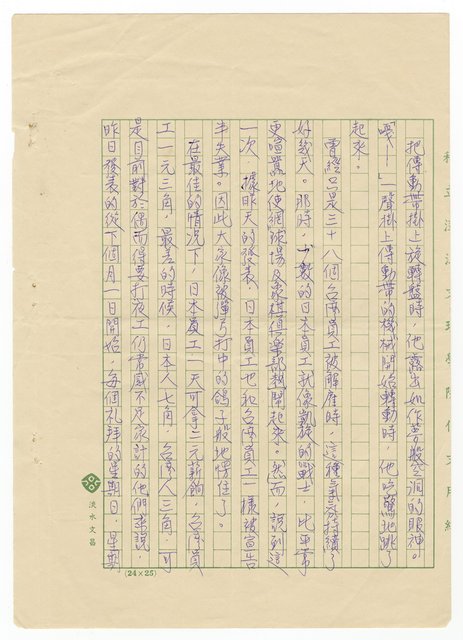 把傳動帶掛上旋轉盤時，他露出如作夢般空洞的眼神。
「嘎—」一聲掛上傳動帶的機械開始轉動時，他吃驚地跳了
起來。
曾經只是三十八個台灣員工被解雇時，這種氣氛持續了
好幾天。那時，少數的日本員工就像凱旋的戰士，比平常
更喧囂地使網球場及象棋俱樂部熱鬧起來。然而，說到這
一次，據昨天的發表，日本員工也和台灣員工一樣被宣告
半失業。因此大家像被彈弓打中的鴿子般地愣住了。
在最佳的情況下，日本員工一天可拿二元薪餉，台灣員
工一元三角，最差的時候，日本人七角，台灣人三角。可
是目前對於偶而得要打夜工仍常感不足家計的他們來說，
昨日發表的從下個月一日開始，每個礼拜的星期日，星期
淡水文昌
(24×25)